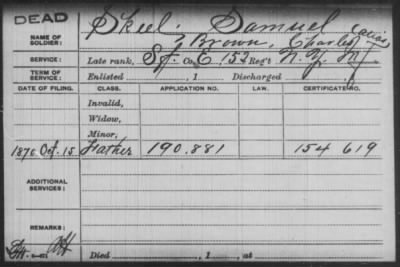 DEAD
NAME OF SOLDIER: Skeel, Samuel
Brown, Charley (alias)
SERVICE: Late rank, Co. E, 152 Reg't N.Y. Inf
TERM OF SERVICE: Enlisted , 1 Discharged
DATE OF FILING. CLASS. APPLICATION NO. LAW. CERTIFICATE NO.
Invalid,
Widow,
Minor,
1870 Oct. 15 Father 190.881 154 619
ADDITIONAL SERVICES:
REMARKS:
Died , 1 , at